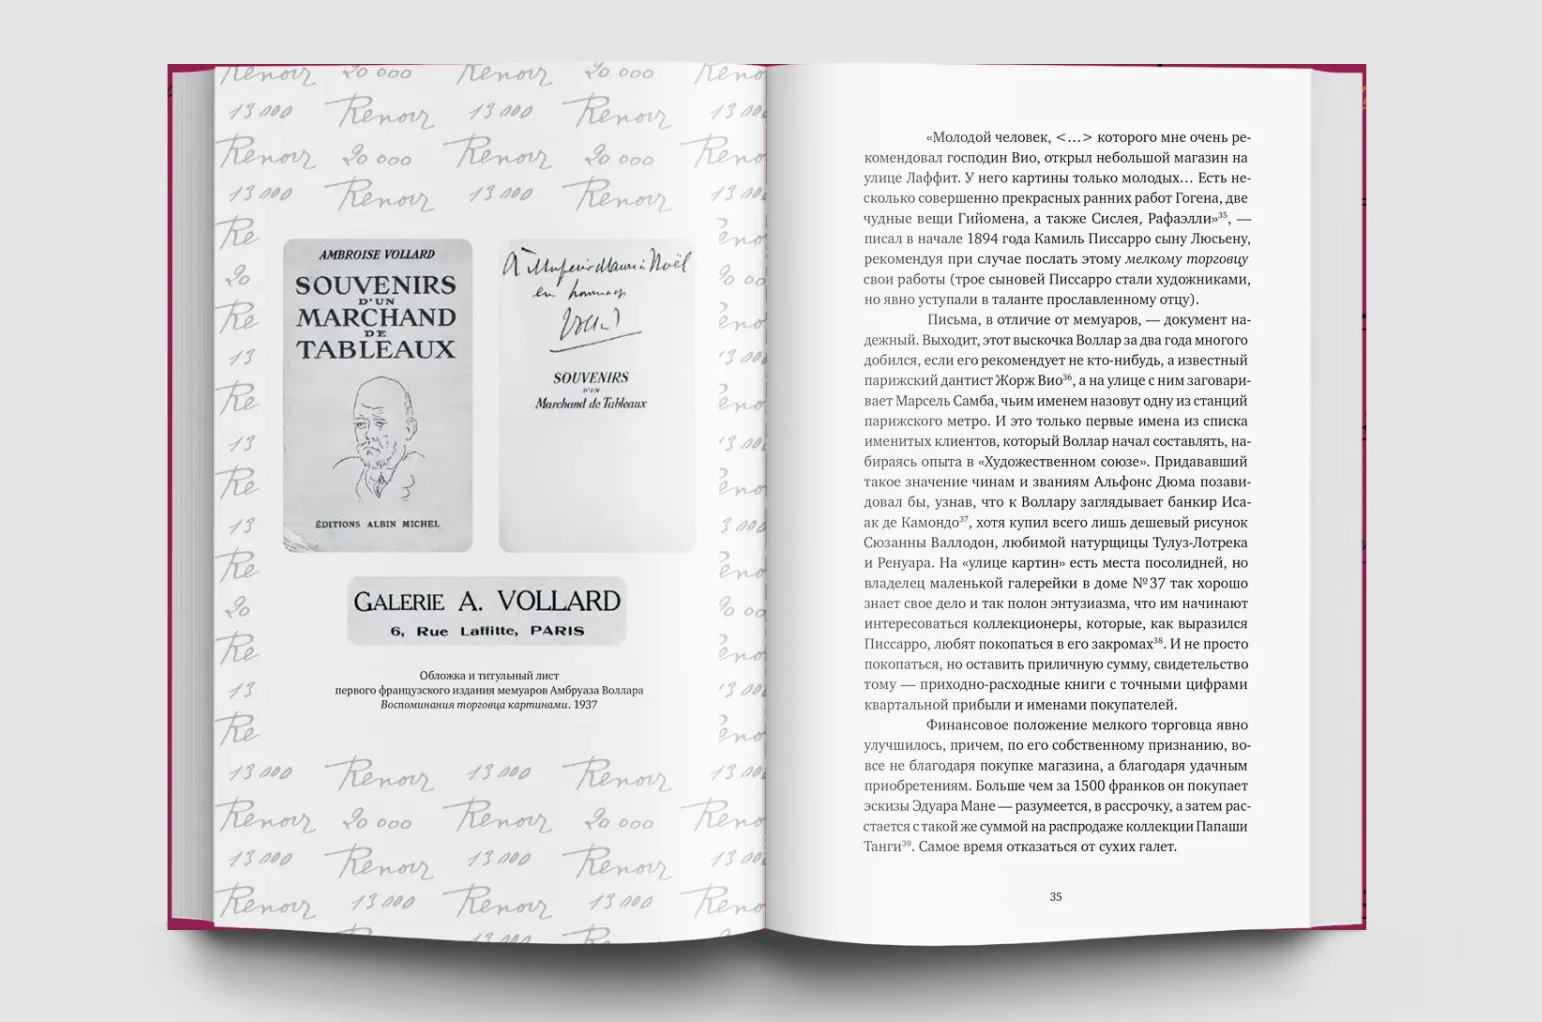 Renoir 20 000 Renoir 20 000
13 000 Renoir 13 000 Renoir
Renoir 20 000 Renoir 20 000
13 000 Renoir 13 000 Renoir
AMBROISE VOLLARD
SOUVENIRS
D'UN
MARCHAND
DE
TABLEAUX
ÉDITIONS ALBIN MICHEL
À Monsieur Maurice Noël
en hommage
Vollard
SOUVENIRS
D'UN
Marchand de Tableaux
GALERIE A. VOLLARD
6, Rue Laffitte, PARIS
Обложка и титульный лист
первого французского издания мемуаров Амбруаза Воллара
Воспоминания торговца картинами. 1937
13 000 Renoir 13 000 Renoir
Renoir 20 000 Renoir 20 000
13 000 Renoir 13 000 Renoir
Renoir 13 000 Renoir 13 000
«Молодой человек, <…> которого мне очень ре-
комендовал господин Вио, открыл небольшой магазин на
улице Лаффит. У него картины только молодых… Есть не-
сколько совершенно прекрасных ранних работ Гогена, две
чудные вещи Гийомена, а также Сислея, Рафаэлли»³⁵, —
писал в начале 1894 года Камиль Писсарро сыну Люсьену,
рекомендуя при случае послать этому мелкому торговцу
свои работы (трое сыновей Писсарро стали художниками,
но явно уступали в таланте прославленному отцу).
Письма, в отличие от мемуаров, — документ на-
дежный. Выходит, этот выскочка Воллар за два года многого
добился, если его рекомендует не кто-нибудь, а известный
парижский дантист Жорж Вио³⁶, а на улице с ним заговари-
вает Марсель Самба, чьим именем назовут одну из станций
парижского метро. И это только первые имена из списка
именитых клиентов, который Воллар начал составлять, на-
бираясь опыта в «Художественном союзе». Придававший
такое значение чинам и званиям Альфонс Дюма позави-
довал бы, узнав, что к Воллару заглядывает банкир Иса-
ак де Камондо³⁷, хотя купил всего лишь дешевый рисунок
Сюзанны Валлодон, любимой натурщицы Тулуз-Лотрека
и Ренуара. На «улице картин» есть места посолидней, но
владелец маленькой галерейки в доме №37 так хорошо
знает свое дело и так полон энтузиазма, что им начинают
интересоваться коллекционеры, которые, как выразился
Писсарро, любят покопаться в его закромах³⁸. И не просто
покопаться, но оставить приличную сумму, свидетельство
тому — приходно-расходные книги с точными цифрами
квартальной прибыли и именами покупателей.
Финансовое положение мелкого торговца явно
улучшилось, причем, по его собственному признанию, во-
все не благодаря покупке магазина, а благодаря удачным
приобретениям. Больше чем за 1500 франков он покупает
эскизы Эдуара Мане — разумеется, в рассрочку, а затем рас-
стается с такой же суммой на распродаже коллекции Папаши
Танги³⁹. Самое время отказаться от сухих галет.
35